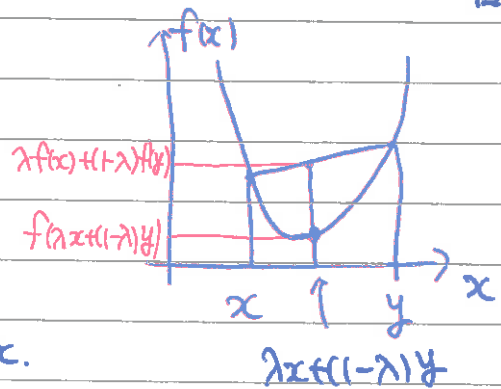 f(x)
λf(x)+(1-λ)f(y)
f(λx+(1-λ)y)
x
y
x
x.
λx+(1-λ)y